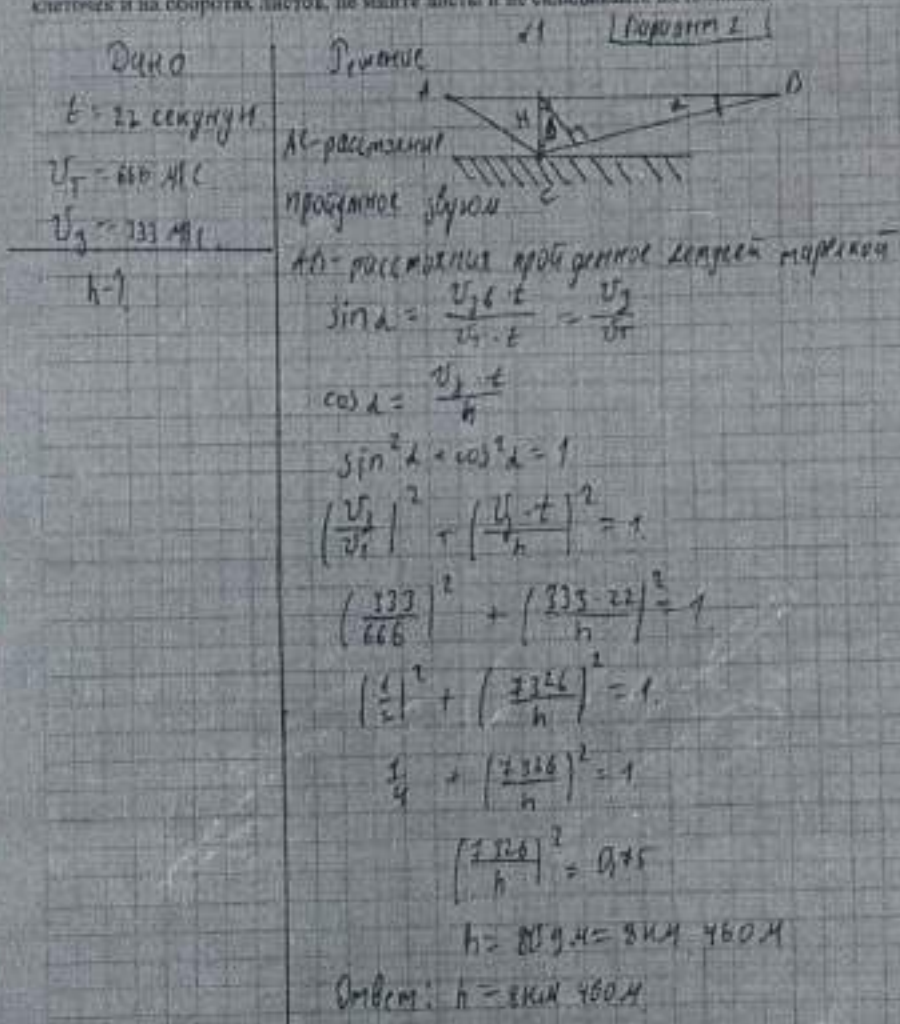 клеточек и на оборотах листов, не
№1 Вариант 2
Дано
Решение
t = 22 секунды
Vт = 666 м/с
Vз = 333 м/с
h - ?
A B
H α
C
AC - расстояние
пройденное звуком
AB - расстояния пройденное летущей тарелкой
sin α = Vзв · t / Vт · t = Vз / Vт
cos α = Vз · t / h
sin² α + cos² α = 1
(Vз / Vт)² + (Vз · t / h)² = 1
(333 / 666)² + (333 · 22 / h)² = 1
(1/2)² + (7326 / h)² = 1
1/4 + (7326 / h)² = 1
(7326 / h)² = 0,75
h = м = 8 км 460 м
Ответ: h = 8 км 460 м